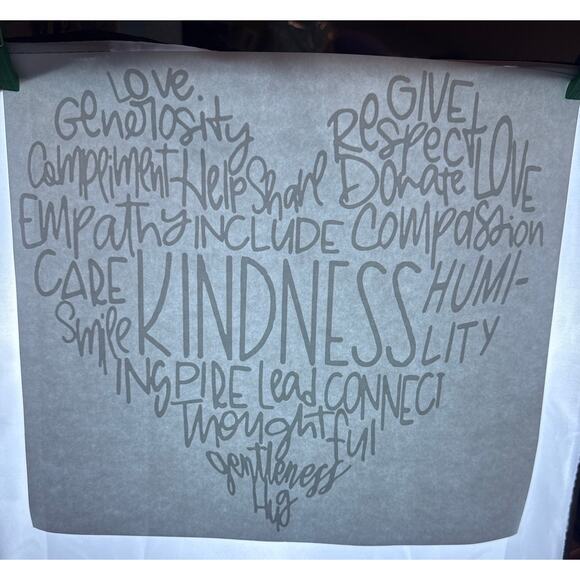 Love GIVE
Generosity Respect
Compliment Help Share Donate LOVE
Empathy INCLUDE Compassion
CARE KINDNESS HUMI-
Smile LITY
INSPIRE Lead CONNECT
Thoughtful
gentleness
Hug